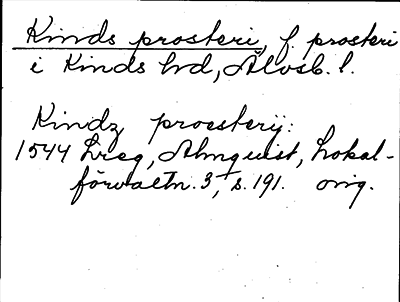 Kinds prosteri, f. prosteri
i Kinds hd, Älvsb. l.
Kindz prossterij:
1544 Lreg, Almquist, Lokal-
förvaltn. 3, s. 191. orig.